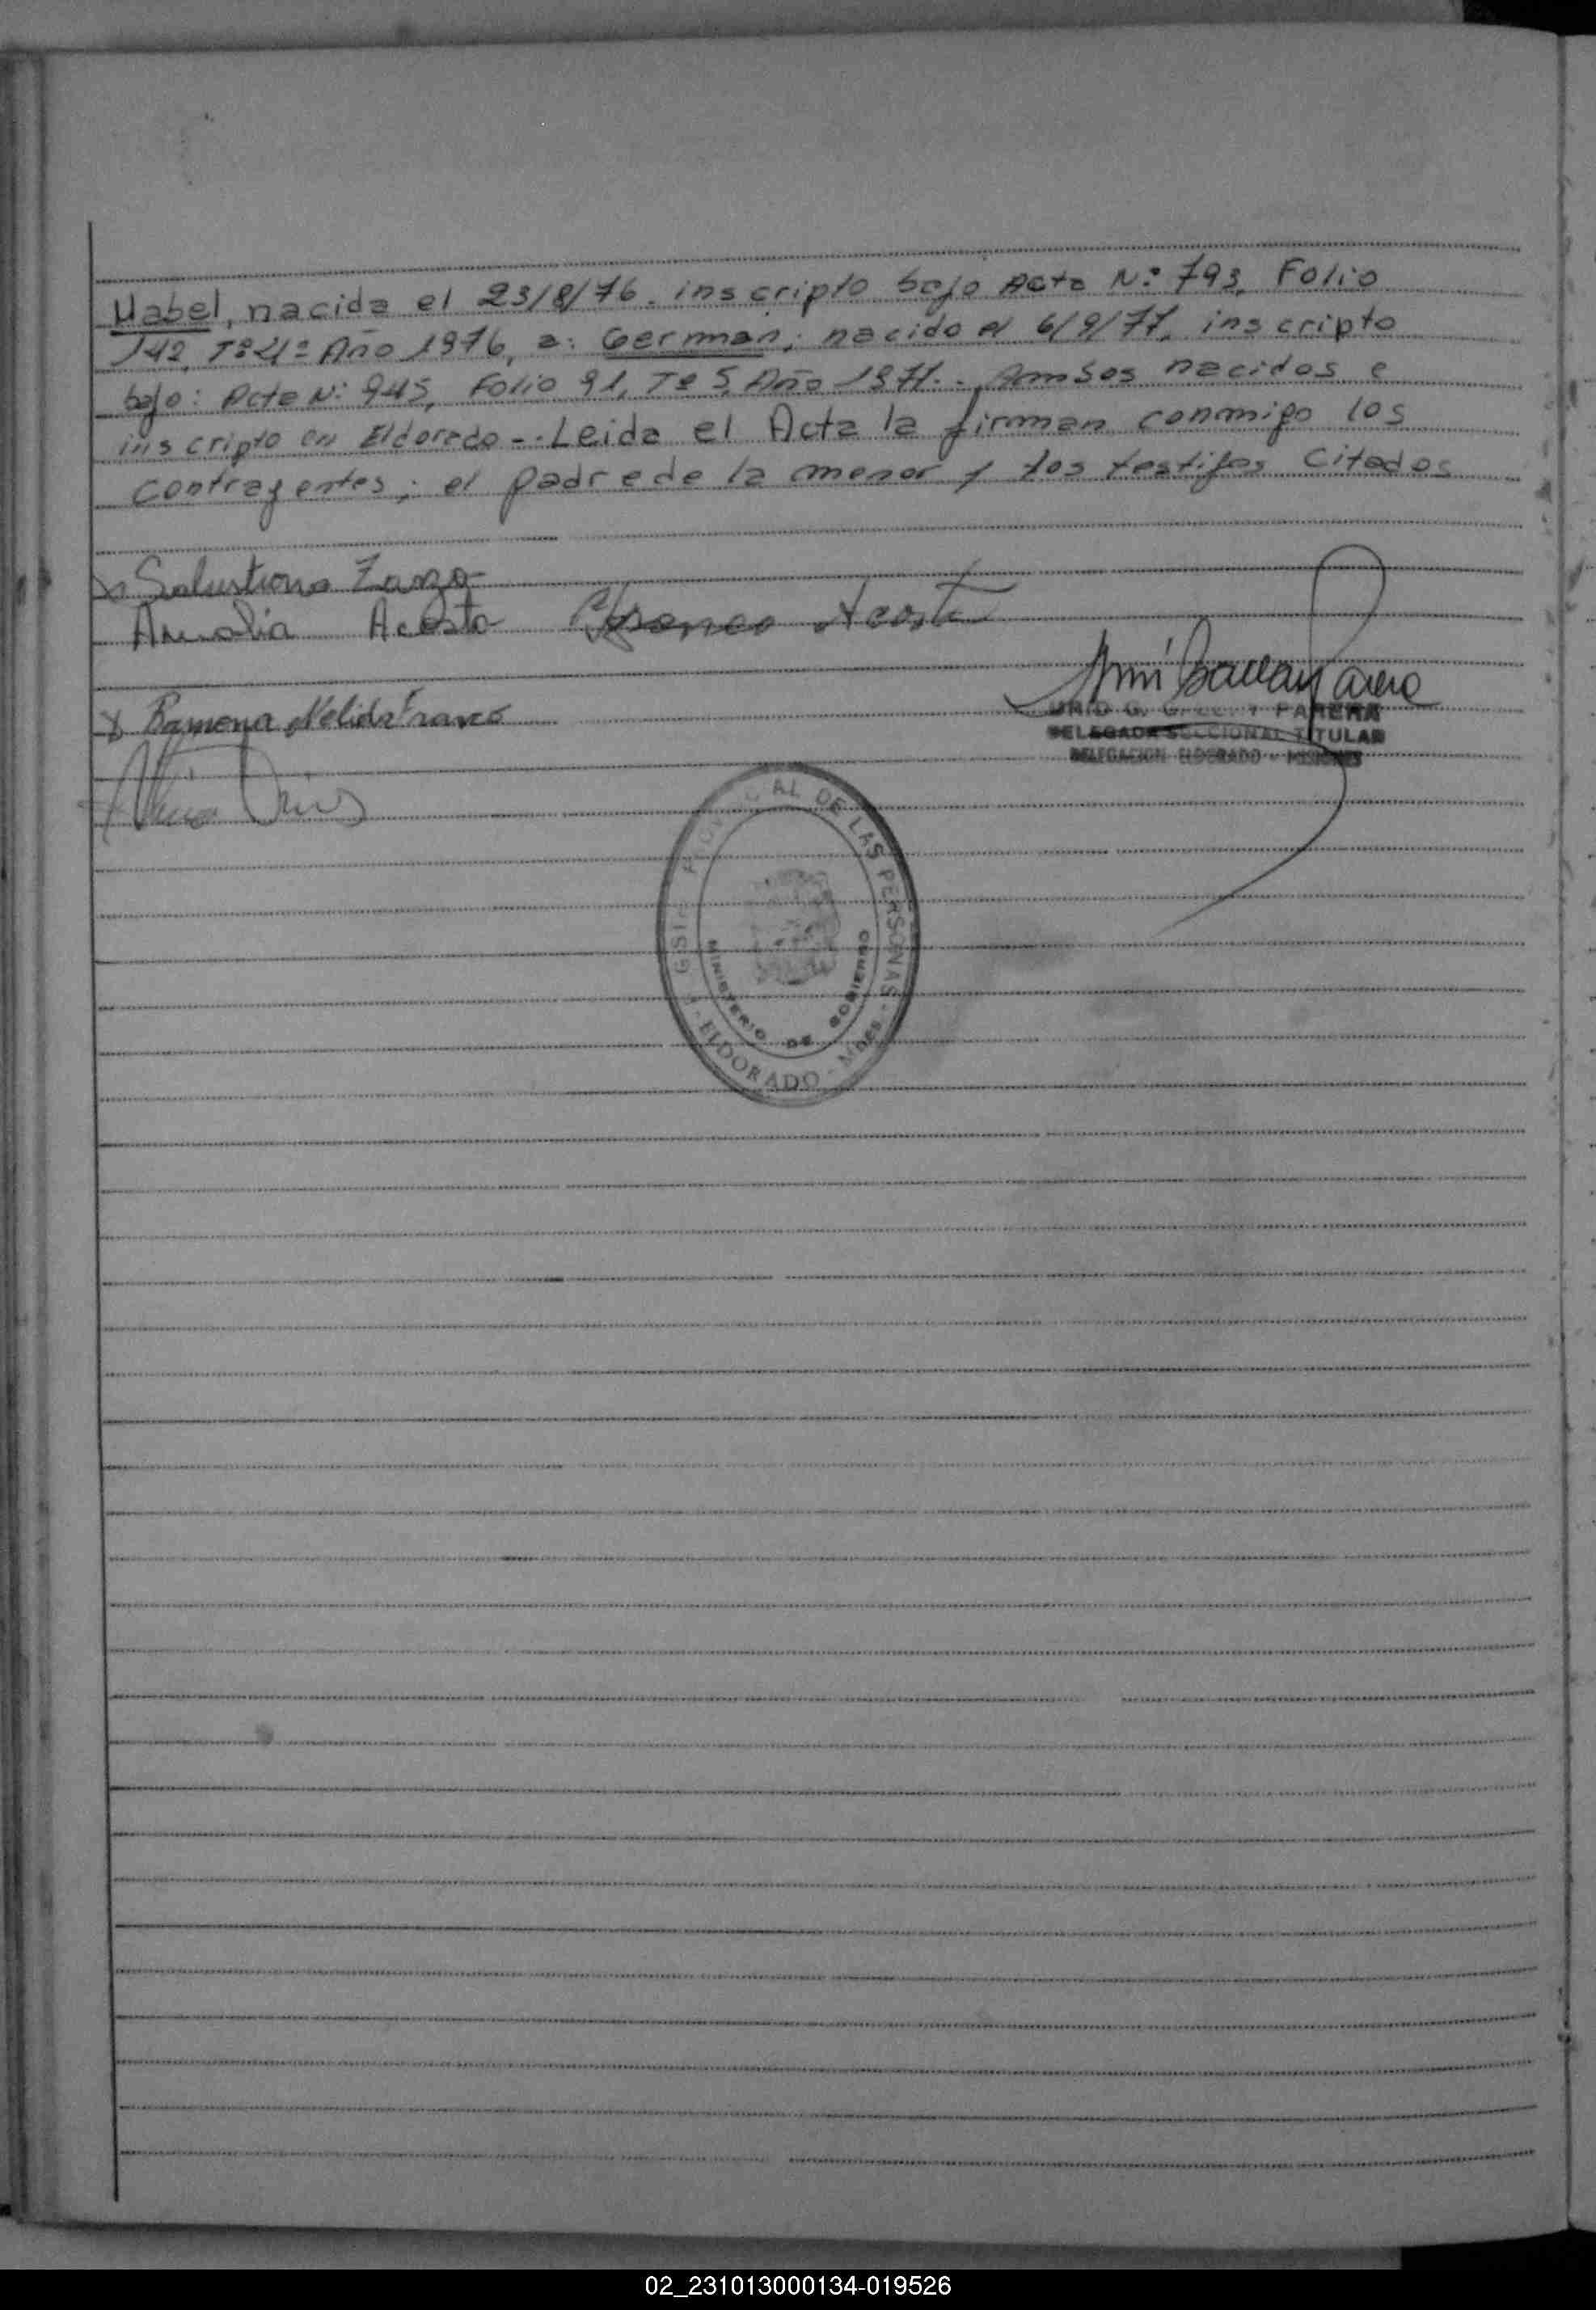 Mabel, nacida el 23/8/76. inscripto bajo Acta N: 793, Folio
142, Tº 4º Año 1976, a: German; nacido el 6/9/77, inscripto
bajo: Acta N: 945, Folio 91, Tº 5, Año 1977.. Ambos nacidos e
inscripto en Eldorado-. Leida el Acta la firman conmigo los
contrayentes; el padre de la menor y los testigos citados
Salustiano
Amalia Acosta Acosta
x Ramona Nelida Franco
PARERA
DELEGADA SECCIONAL TITULAR
DELEGACION ELDORADO - MISIONES
AL DE LAS PERSONAS
MINISTERIO DE GOBIERNO
ELDORADO - Mnes.
02_231013000134-019526